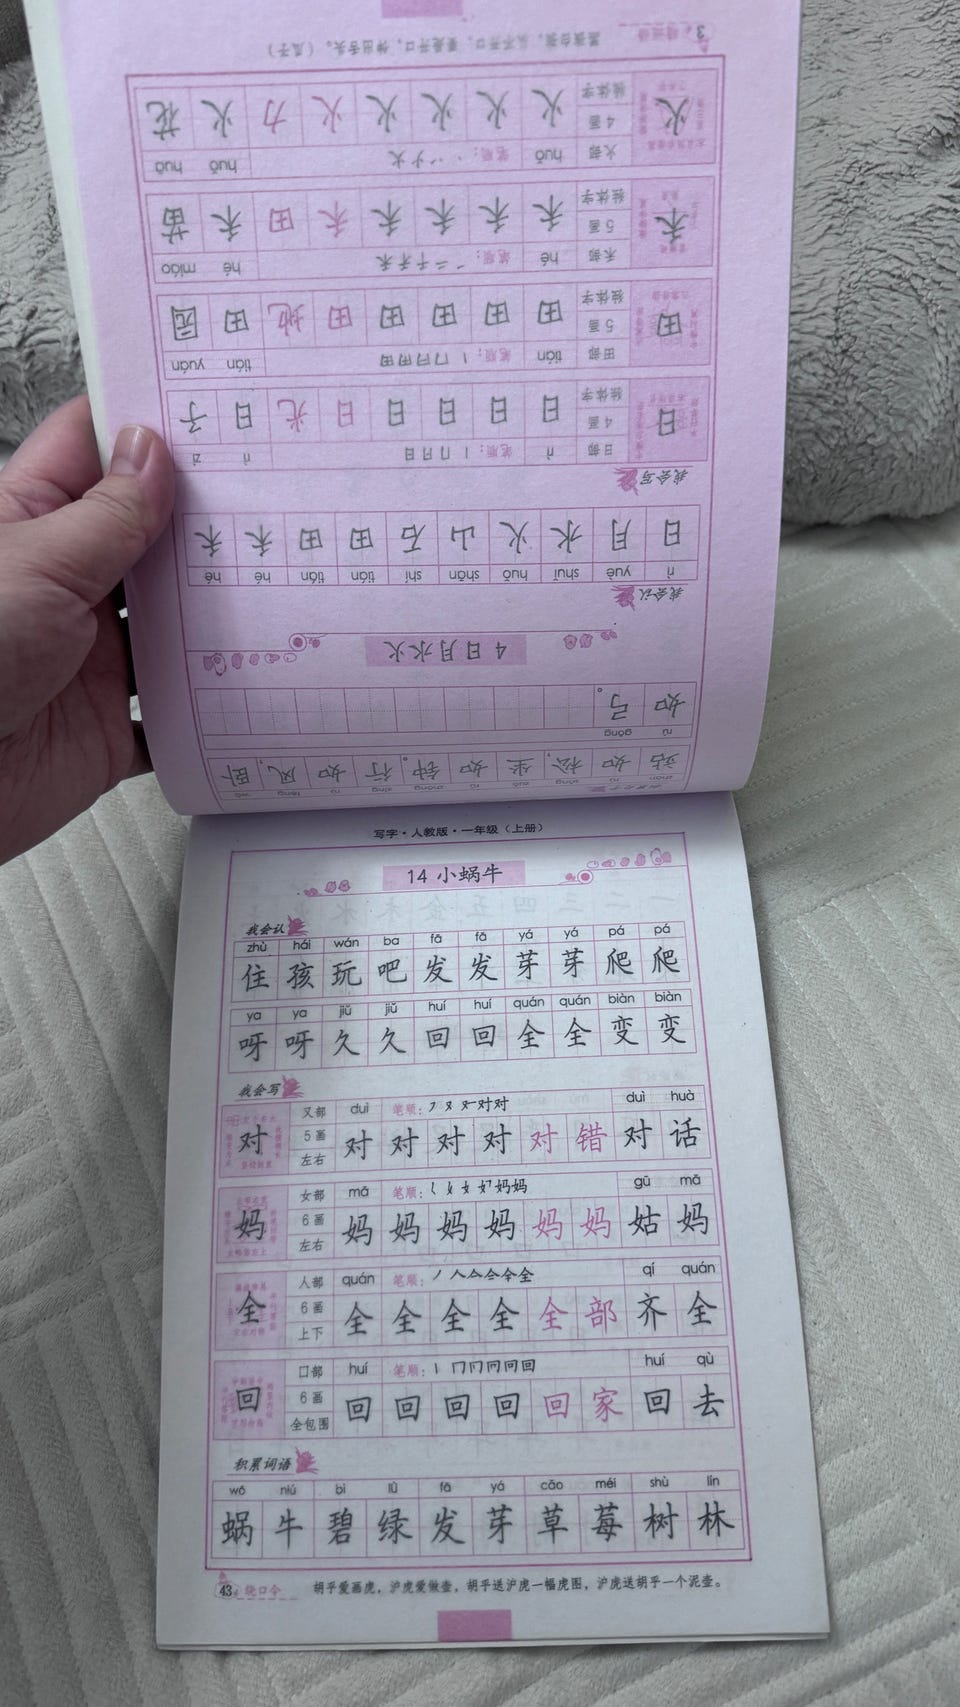 写字·人教版·一年级（上册）
14 小蜗牛
我会认
zhù hái wán ba fā fā yá yá pá pá
住 孩 玩 吧 发 发 芽 芽 爬 爬
ya ya jiǔ jiǔ huí huí quán quán biàn biàn
呀 呀 久 久 回 回 全 全 变 变
我会写
对 又部 duì 笔顺： duì huà
5画 左右 对 对 对 对 对 错 对 话
妈 女部 mā 笔顺： gū mā
6画 左右 妈 妈 妈 妈 妈 妈 姑 妈
全 人部 quán 笔顺： qí quán
6画 上下 全 全 全 全 全 部 齐 全
回 口部 huí 笔顺： huí qù
6画 全包围 回 回 回 回 回 家 回 去
积累词语
wō niú bì lǜ fā yá cǎo méi shù lín
蜗 牛 碧 绿 发 芽 草 莓 树 林
43 绕口令 胡乎爱画虎，沪虎爱做壶，胡乎送沪虎一幅虎图，沪虎送胡乎一个泥壶。
zhàn rú sōng zuò rú zhōng xíng rú fēng wò
站 如 松， 坐 如 钟。 行 如 风， 卧
rú gōng
如 弓。
4 日月水火
我会认
rì yuè shuǐ huǒ shān shí tián tián hé hé
日 月 水 火 山 石 田 田 禾 禾
我会写
日 日部 rì 笔顺： rì zi
4画 独体字 日 日 日 日 日 光 日 子
田 田部 tián 笔顺： tián yuán
5画 独体字 田 田 田 田 田 地 田 园
禾 禾部 hé 笔顺： hé miáo
5画 独体字 禾 禾 禾 禾 禾 田 禾 苗
火 火部 huǒ 笔顺： huǒ huā
4画 独体字 火 火 火 火 火 力 火 花
3